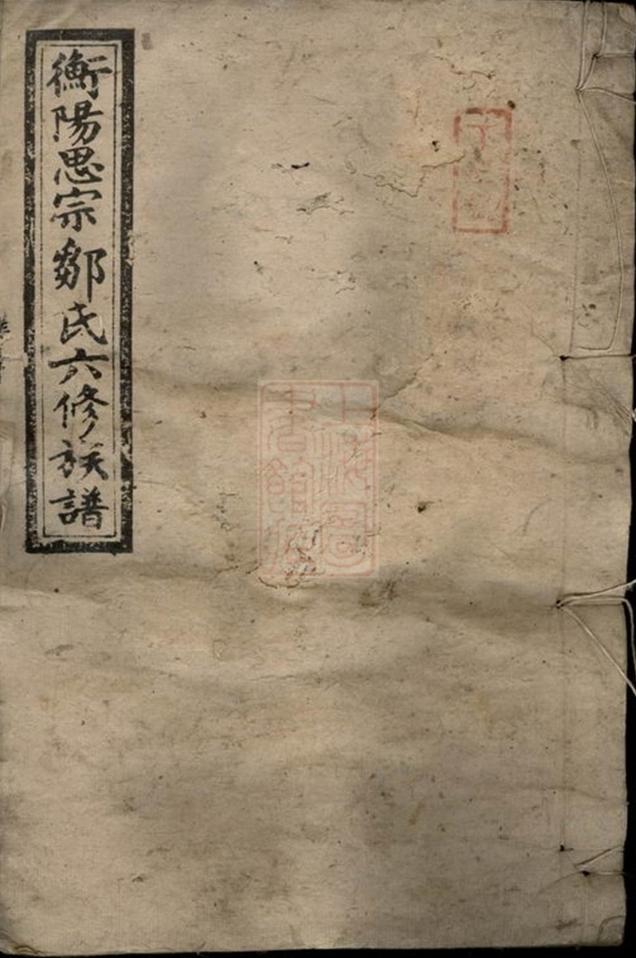 衡陽思宗鄒氏六修族譜
上海圖
書館藏